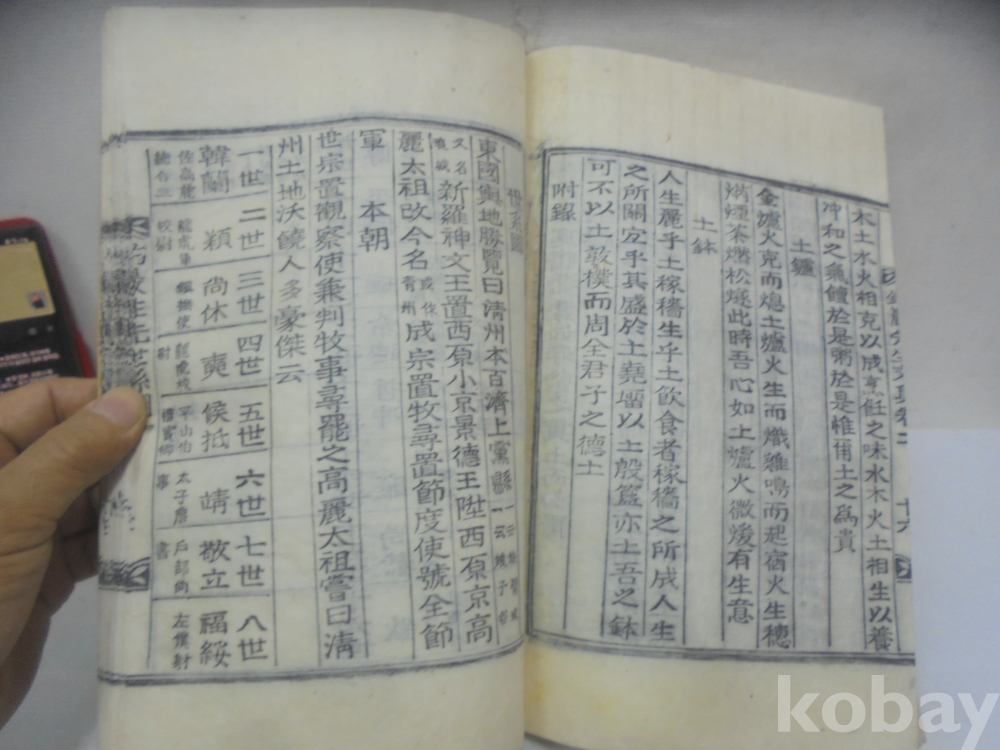 木土水火相克以成烹飪之味水木火土相生以養
冲和之氣饘於是粥於是惟甫土之為貴
土鑪
金爐火克而熄土爐火生而熾雞鳴而起宿火生穗
炳煙峯爇松㷸此時吾心如土爐火微煖有生意
土鉢
人生麗乎土稼穡生乎土飲食者稼穡之所成人生
之所關宜乎其盛於土堯塯以土殷簋亦土吾之鉢
可不以土敦樸而周全君子之德土
附錄
世系圖
東國輿地勝覽曰清州本百濟上黨縣
新羅神文王置西原小京景德王陞西原京高
麗太祖改今名成宗置牧尋置節度使號全節
軍 本朝
世宗置觀察使兼判牧事尋罷之高麗太祖嘗曰清
州土地沃饒人多豪傑云
一世 二世 三世 四世 五世 六世 七世 八世
韓蘭 穎 尚休 奭 侯抵 靖 敬立 福綏
kobay